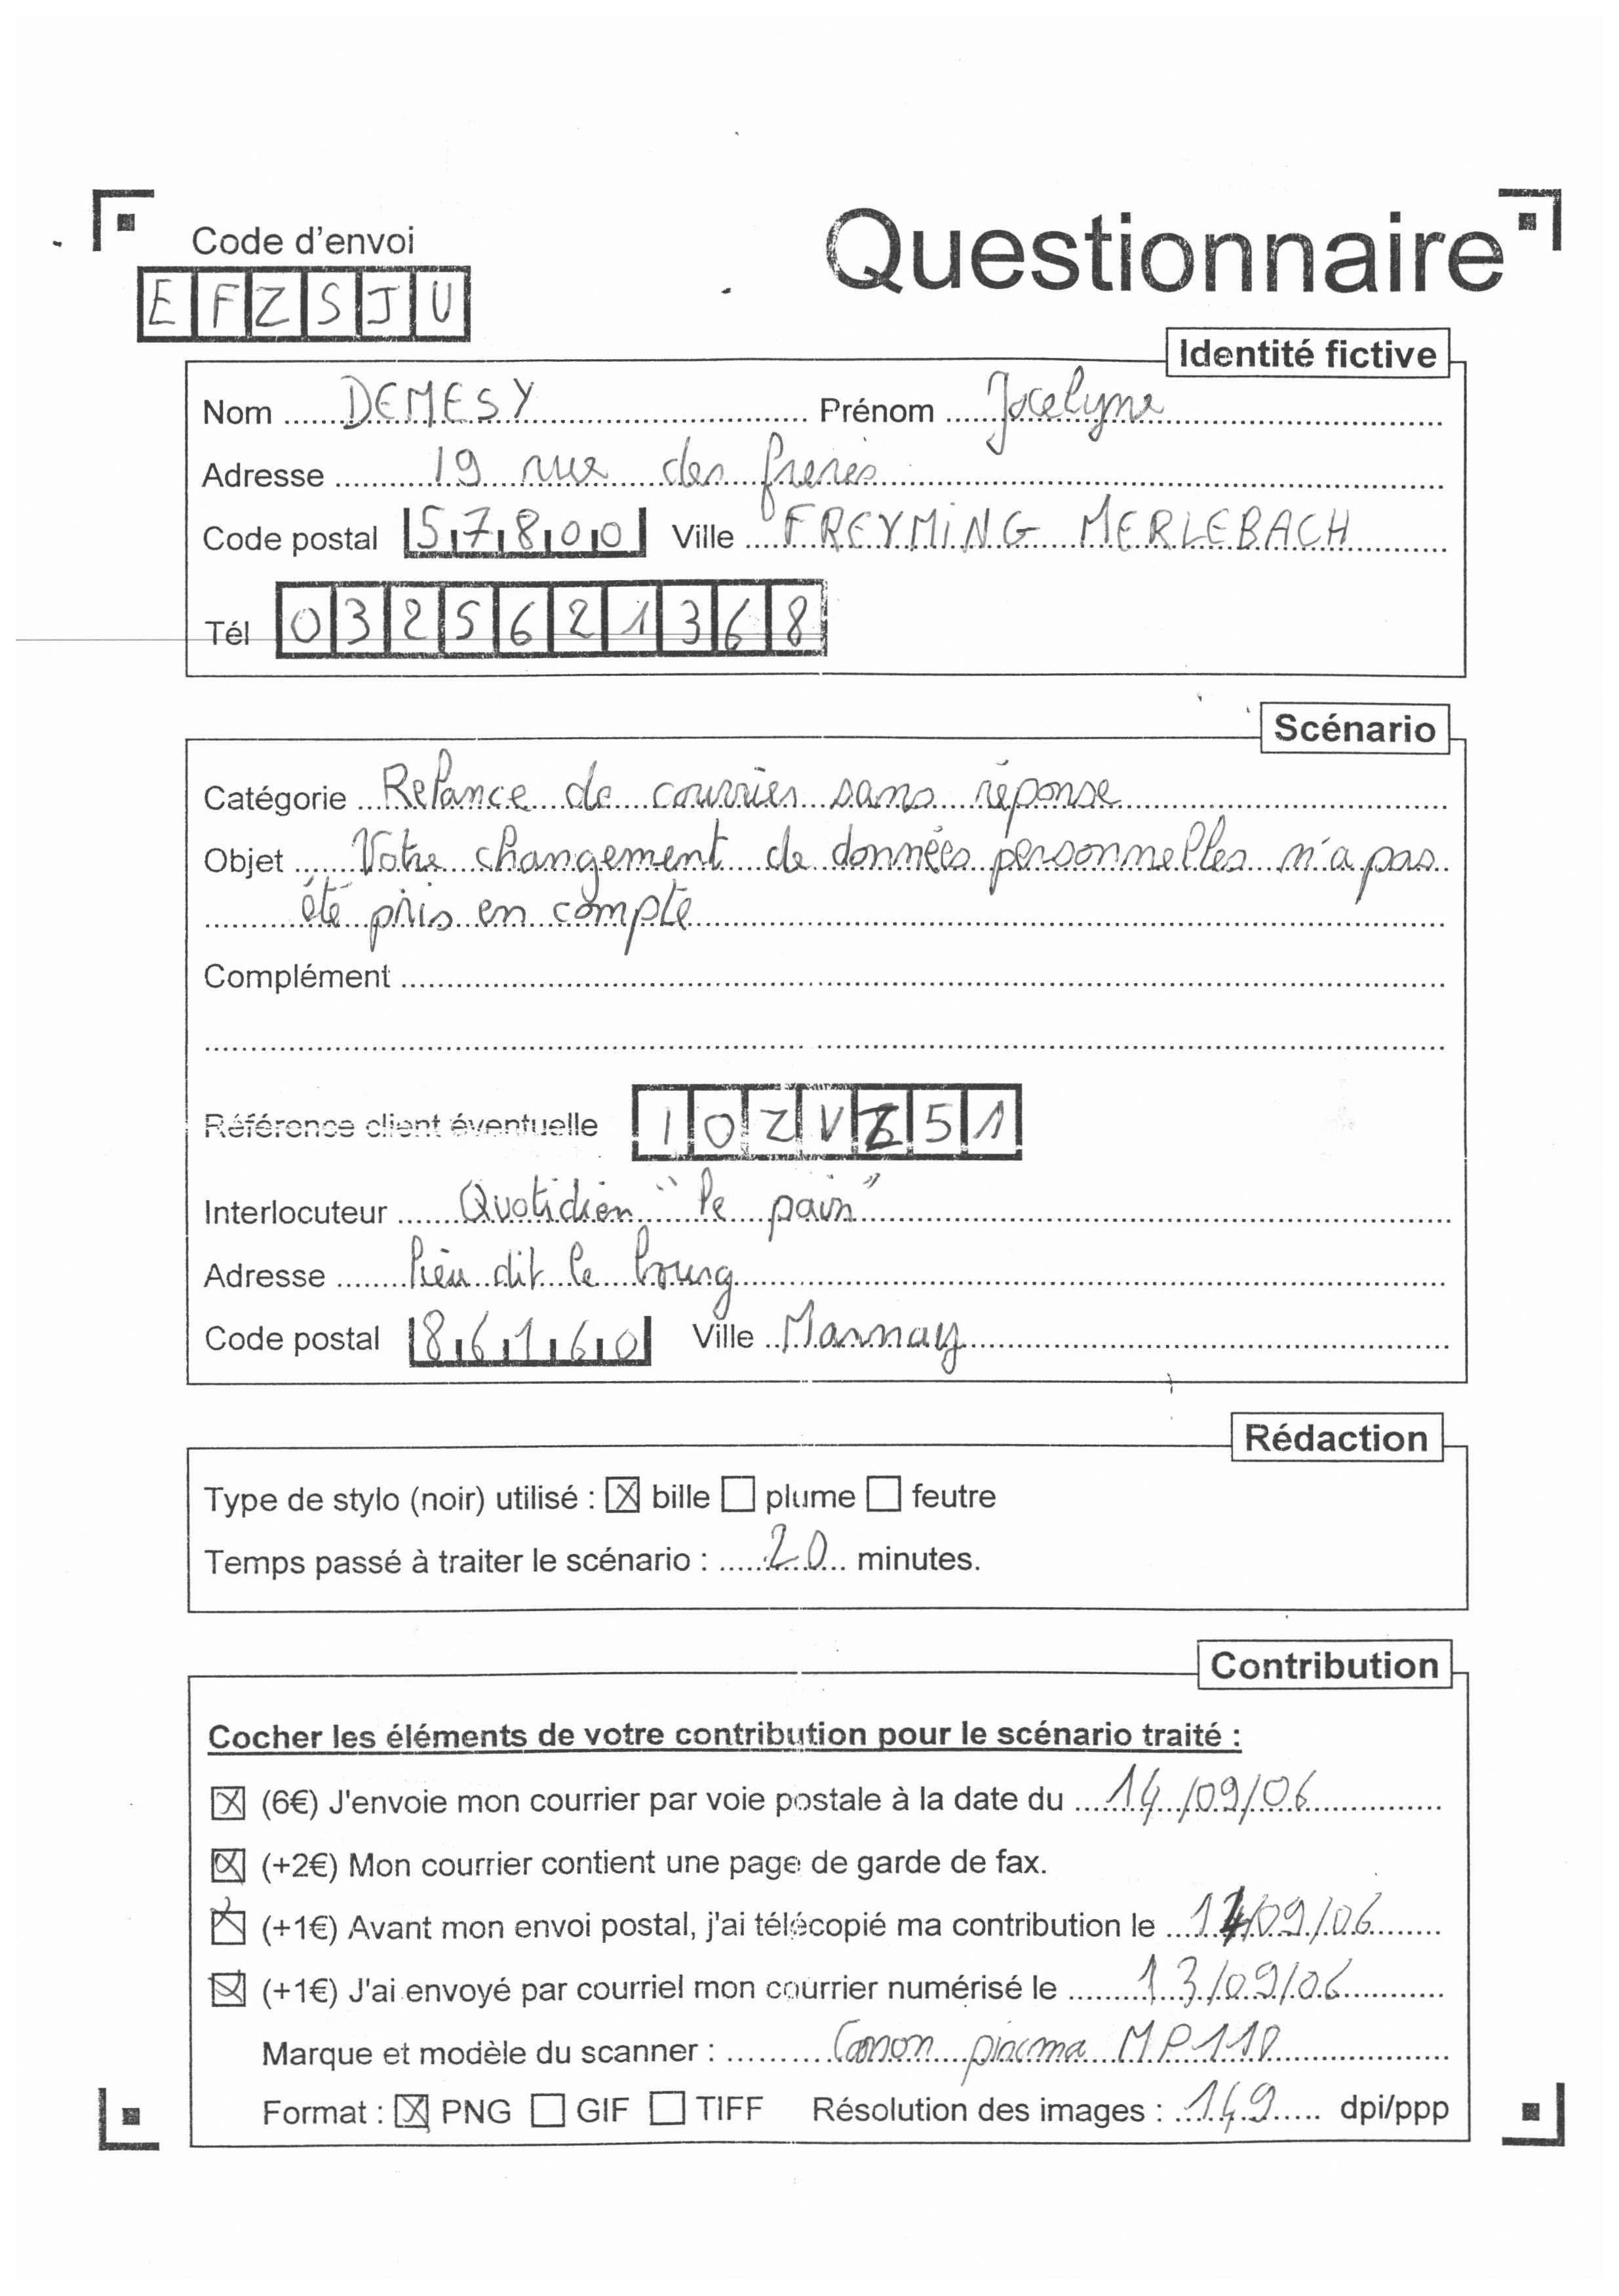 Code d'envoi
Questionnaire
E F Z S J U
Identité fictive
Nom DEMESY Prénom Jocelyne
Adresse 19 rue des freres
Code postal 57800 Ville FREYMING MERLEBACH
Tél 0325621368
Scénario
Catégorie Relance de courrier sans réponse
Objet Votre changement de données personnelles n'a pas
été pris en compte
Complément
Référence client éventuelle 10ZVZ51
Interlocuteur Quotidien "le pain"
Adresse lieu dit le bourg
Code postal 86160 Ville Marnay
Rédaction
Type de stylo (noir) utilisé : ☒ bille ☐ plume ☐ feutre
Temps passé à traiter le scénario : 20 minutes.
Contribution
Cocher les éléments de votre contribution pour le scénario traité :
☒ (6€) J'envoie mon courrier par voie postale à la date du 14/09/06
☒ (+2€) Mon courrier contient une page de garde de fax.
☒ (+1€) Avant mon envoi postal, j'ai télécopié ma contribution le /09/06
☒ (+1€) J'ai envoyé par courriel mon courrier numérisé le 13/09/06
Marque et modèle du scanner : Canon MP110
Format : ☒ PNG ☐ GIF ☐ TIFF Résolution des images : 149 dpi/ppp